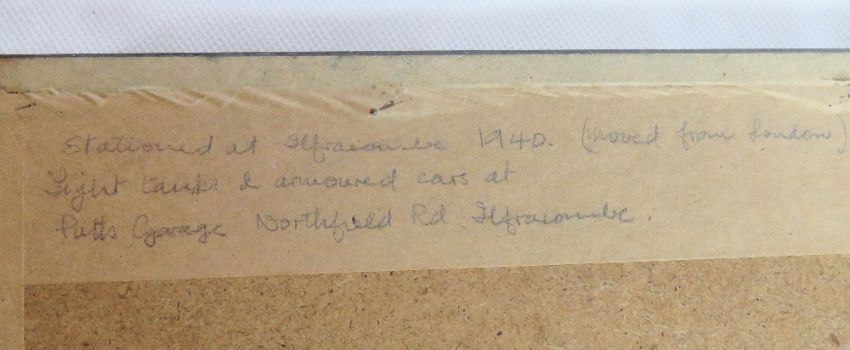 Stationed at Ilfracombe 1940. (Moved from London)
Light tanks & armoured cars at
Putts Garage Northfield Rd Ilfracombe.